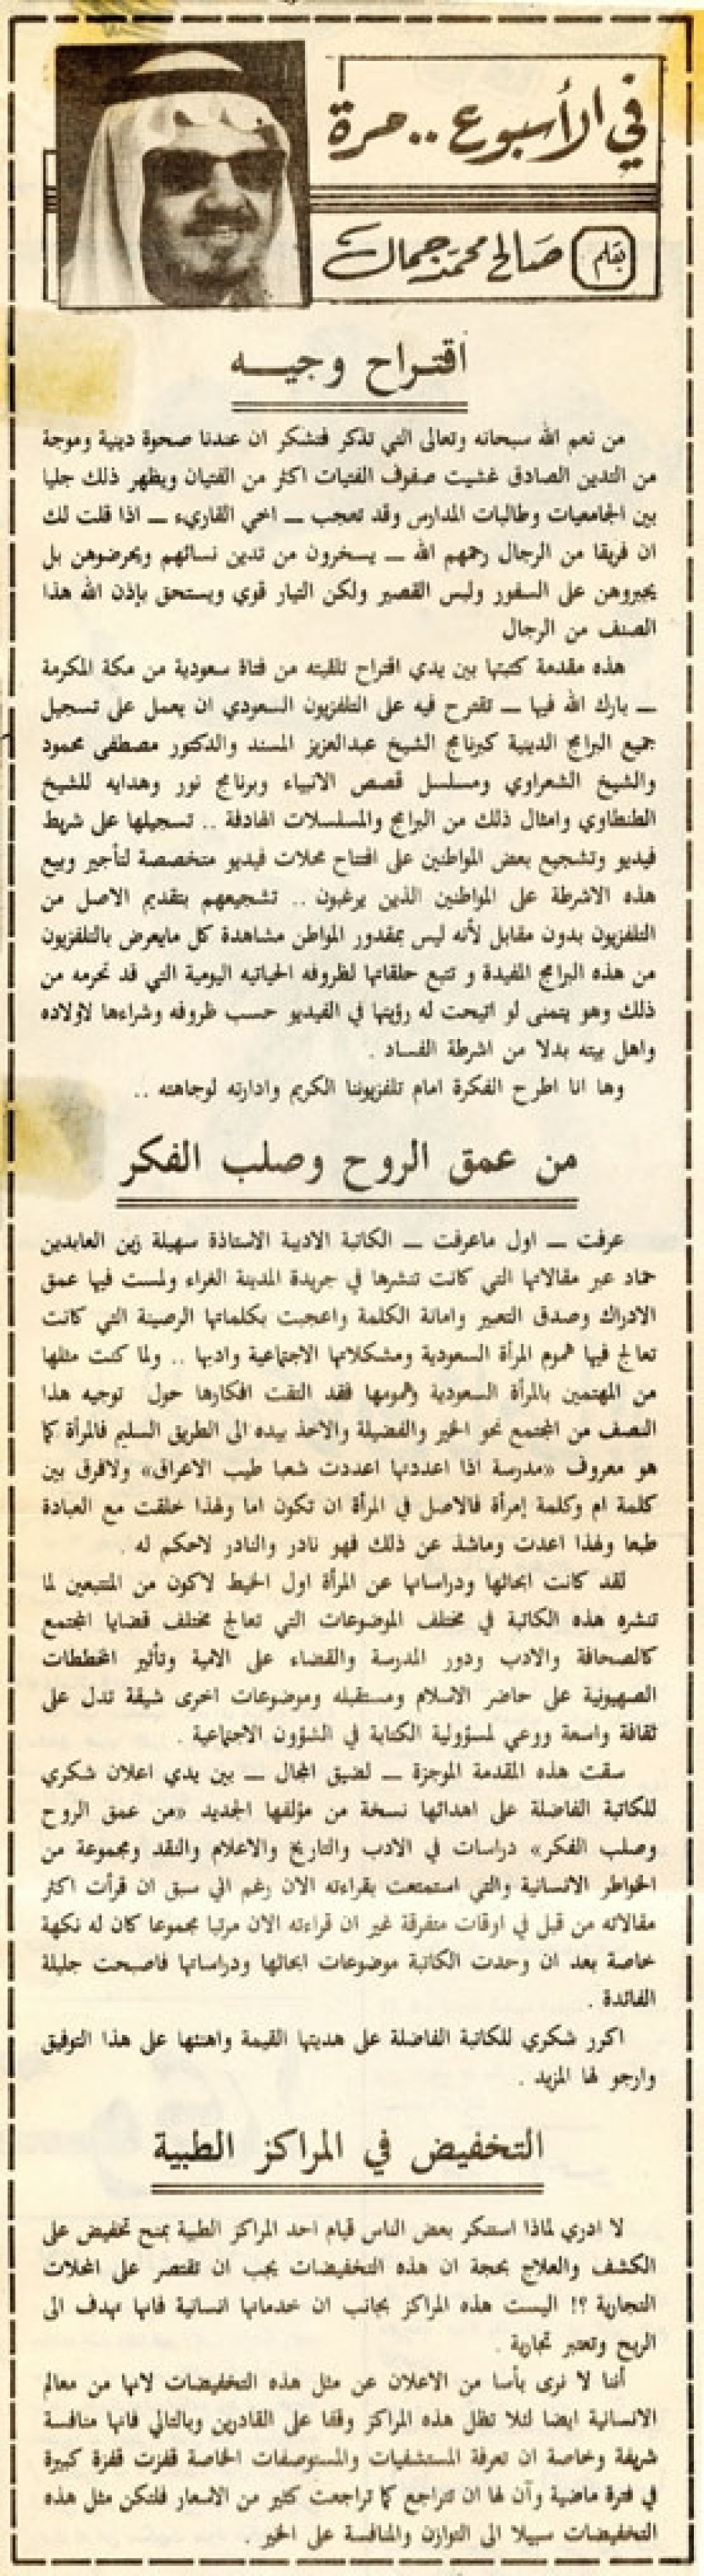 في الأسبوع .. مرة
بقلم صالح محمد جمال
اقتراح وجيه
من نعم الله سبحانه وتعالى التي تذكر فتشكر ان عندنا صحوة دينية وموجة
من التدين الصادق غشيت صفوف الفتيات اكثر من الفتيان ويظهر ذلك جليا
بين الجامعيات وطالبات المدارس وقد تعجب ــ اخي القاريء ــ اذا قلت لك
ان فريقا من الرجال رحمهم الله ــ يسخرون من تدين نسائهم ويحرضوهن بل
يجبروهن على السفور وليس القصير ولكن التيار قوي ويستحق بإذن الله هذا
الصنف من الرجال
هذه مقدمة كتبتها بين يدي اقتراح تلقيته من فتاة سعودية من مكة المكرمة
ــ بارك الله فيها ــ تقترح فيه على التلفزيون السعودي ان يعمل على تسجيل
جميع البرامج الدينية كبرنامج الشيخ عبدالعزيز المسند والدكتور مصطفى محمود
والشيخ الشعراوي ومسلسل قصص الانبياء وبرنامج نور وهدايه للشيخ
الطنطاوي وامثال ذلك من البرامج والمسلسلات الهادفة .. تسجيلها على شريط
فيديو وتشجيع بعض المواطنين على افتتاح محلات فيديو متخصصة لتأجير وبيع
هذه الاشرطة على المواطنين الذين يرغبون .. تشجيعهم بتقديم الاصل من
التلفزيون بدون مقابل لأنه ليس بمقدور المواطن مشاهدة كل مايعرض بالتلفزيون
من هذه البرامج المفيدة و تتبع حلقاتها لظروفه الحياتيه اليومية التي قد تحرمه من
ذلك وهو يتمنى لو اتيحت له رؤيتها في الفيديو حسب ظروفه وشراءها لاولاده
واهل بيته بدلا من اشرطة الفساد .
وها انا اطرح الفكرة امام تلفزيوننا الكريم وادارته لوجاهته ..
من عمق الروح وصلب الفكر
عرفت ــ اول ماعرفت ــ الكاتبة الاديبة الاستاذة سهيلة زين العابدين
حماد عبر مقالاتها التي كانت تنشرها في جريدة المدينة الغراء ولمست فيها عمق
الادراك وصدق التعبير وامانة الكلمة واعجبت بكلماتها الرصينة التي كانت
تعالج فيها هموم المرأة السعودية ومشكلاتها الاجتماعية وادبها .. ولما كنت مثلها
من المهتمين بالمرأة السعودية وهمومها فقد التقت افكارها حول توجيه هذا
النصف من المجتمع نحو الخير والفضيلة والاخذ بيده الى الطريق السليم فالمرأة كما
هو معروف «مدرسة اذا اعددتها اعددت شعبا طيب الاعراق» ولافرق بين
كلمة ام وكلمة إمرأة فالاصل في المرأة ان تكون اما ولهذا خلقت مع العبادة
طبعا ولهذا اعدت وماشذ عن ذلك فهو نادر والنادر لاحكم له .
لقد كانت ابحاثها ودراساتها عن المرأة اول الخيط لاكون من المتتبعين لما
تنشره هذه الكاتبة في مختلف الموضوعات التي تعالج مختلف قضايا المجتمع
كالصحافة والادب ودور المدرسة والقضاء على الامية وتأثير المخططات
الصهيونية على حاضر الاسلام ومستقبله وموضوعات اخرى شيقة تدل على
ثقافة واسعة ووعي لمسؤولية الكتابة في الشؤون الاجتماعية .
سقت هذه المقدمة الموجزة ــ لضيق المجال ــ بين يدي اعلان شكري
للكاتبة الفاضلة على اهدائها نسخة من مؤلفها الجديد «من عمق الروح
وصلب الفكر» دراسات في الادب والتاريخ والاعلام والنقد ومجموعة من
الخواطر الانسانية والتي استمتعت بقراءته الان رغم اني سبق ان قرأت اكثر
مقالاته من قبل في اوقات متفرقة غير ان قراءته الان مرتبا مجموعا كان له نكهة
خاصة بعد ان وحدت الكاتبة موضوعات ابحاثها ودراساتها فاصبحت جليلة
الفائدة .
اكرر شكري للكاتبة الفاضلة على هديتها القيمة واهنئها على هذا التوفيق
وارجو لها المزيد .
التخفيض في المراكز الطبية
لا ادري لماذا استنكر بعض الناس قيام احد المراكز الطبية بمنح تخفيض على
الكشف والعلاج بحجة ان هذه التخفيضات يجب ان تقتصر على المحلات
التجارية ؟! اليست هذه المراكز بجانب ان خدماتها انسانية فانها تهدف الى
الربح وتعتبر تجارية .
أننا لا نرى بأسا من الاعلان عن مثل هذه التخفيضات لانها من معالم
الانسانية ايضا لئلا تظل هذه المراكز وقفا على القادرين وبالتالي فانها منافسة
شريفة وخاصة ان تعرفة المستشفيات والمستوصفات الخاصة قفزت قفزة كبيرة
في فترة ماضية وآن لها ان تتراجع كما تراجعت كثير من الاسعار فلتكن مثل هذه
التخفيضات سبيلا الى التوازن والمنافسة على الخير .